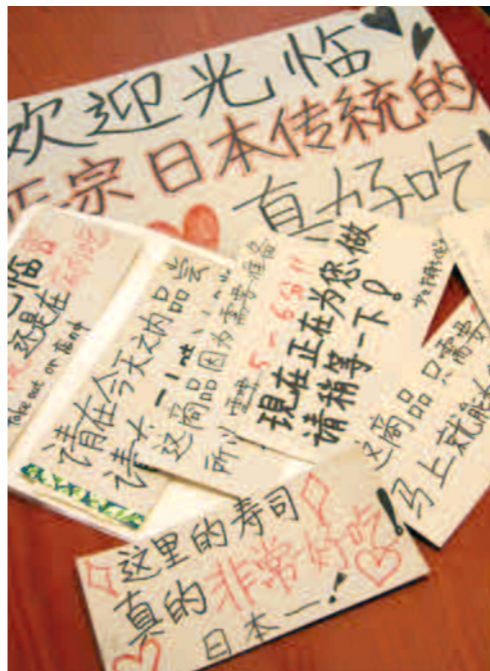 欢迎光临
正宗日本传統的
真好吃
临
还是在
Take out or Eat in
请在今天之内品尝
这商品因为需要准备
所以
需要5-6分!!
現在正在为您做
请稍等一下!
这商品只需要
马上就能
这里的寿司
真的非常好吃!
日本一!